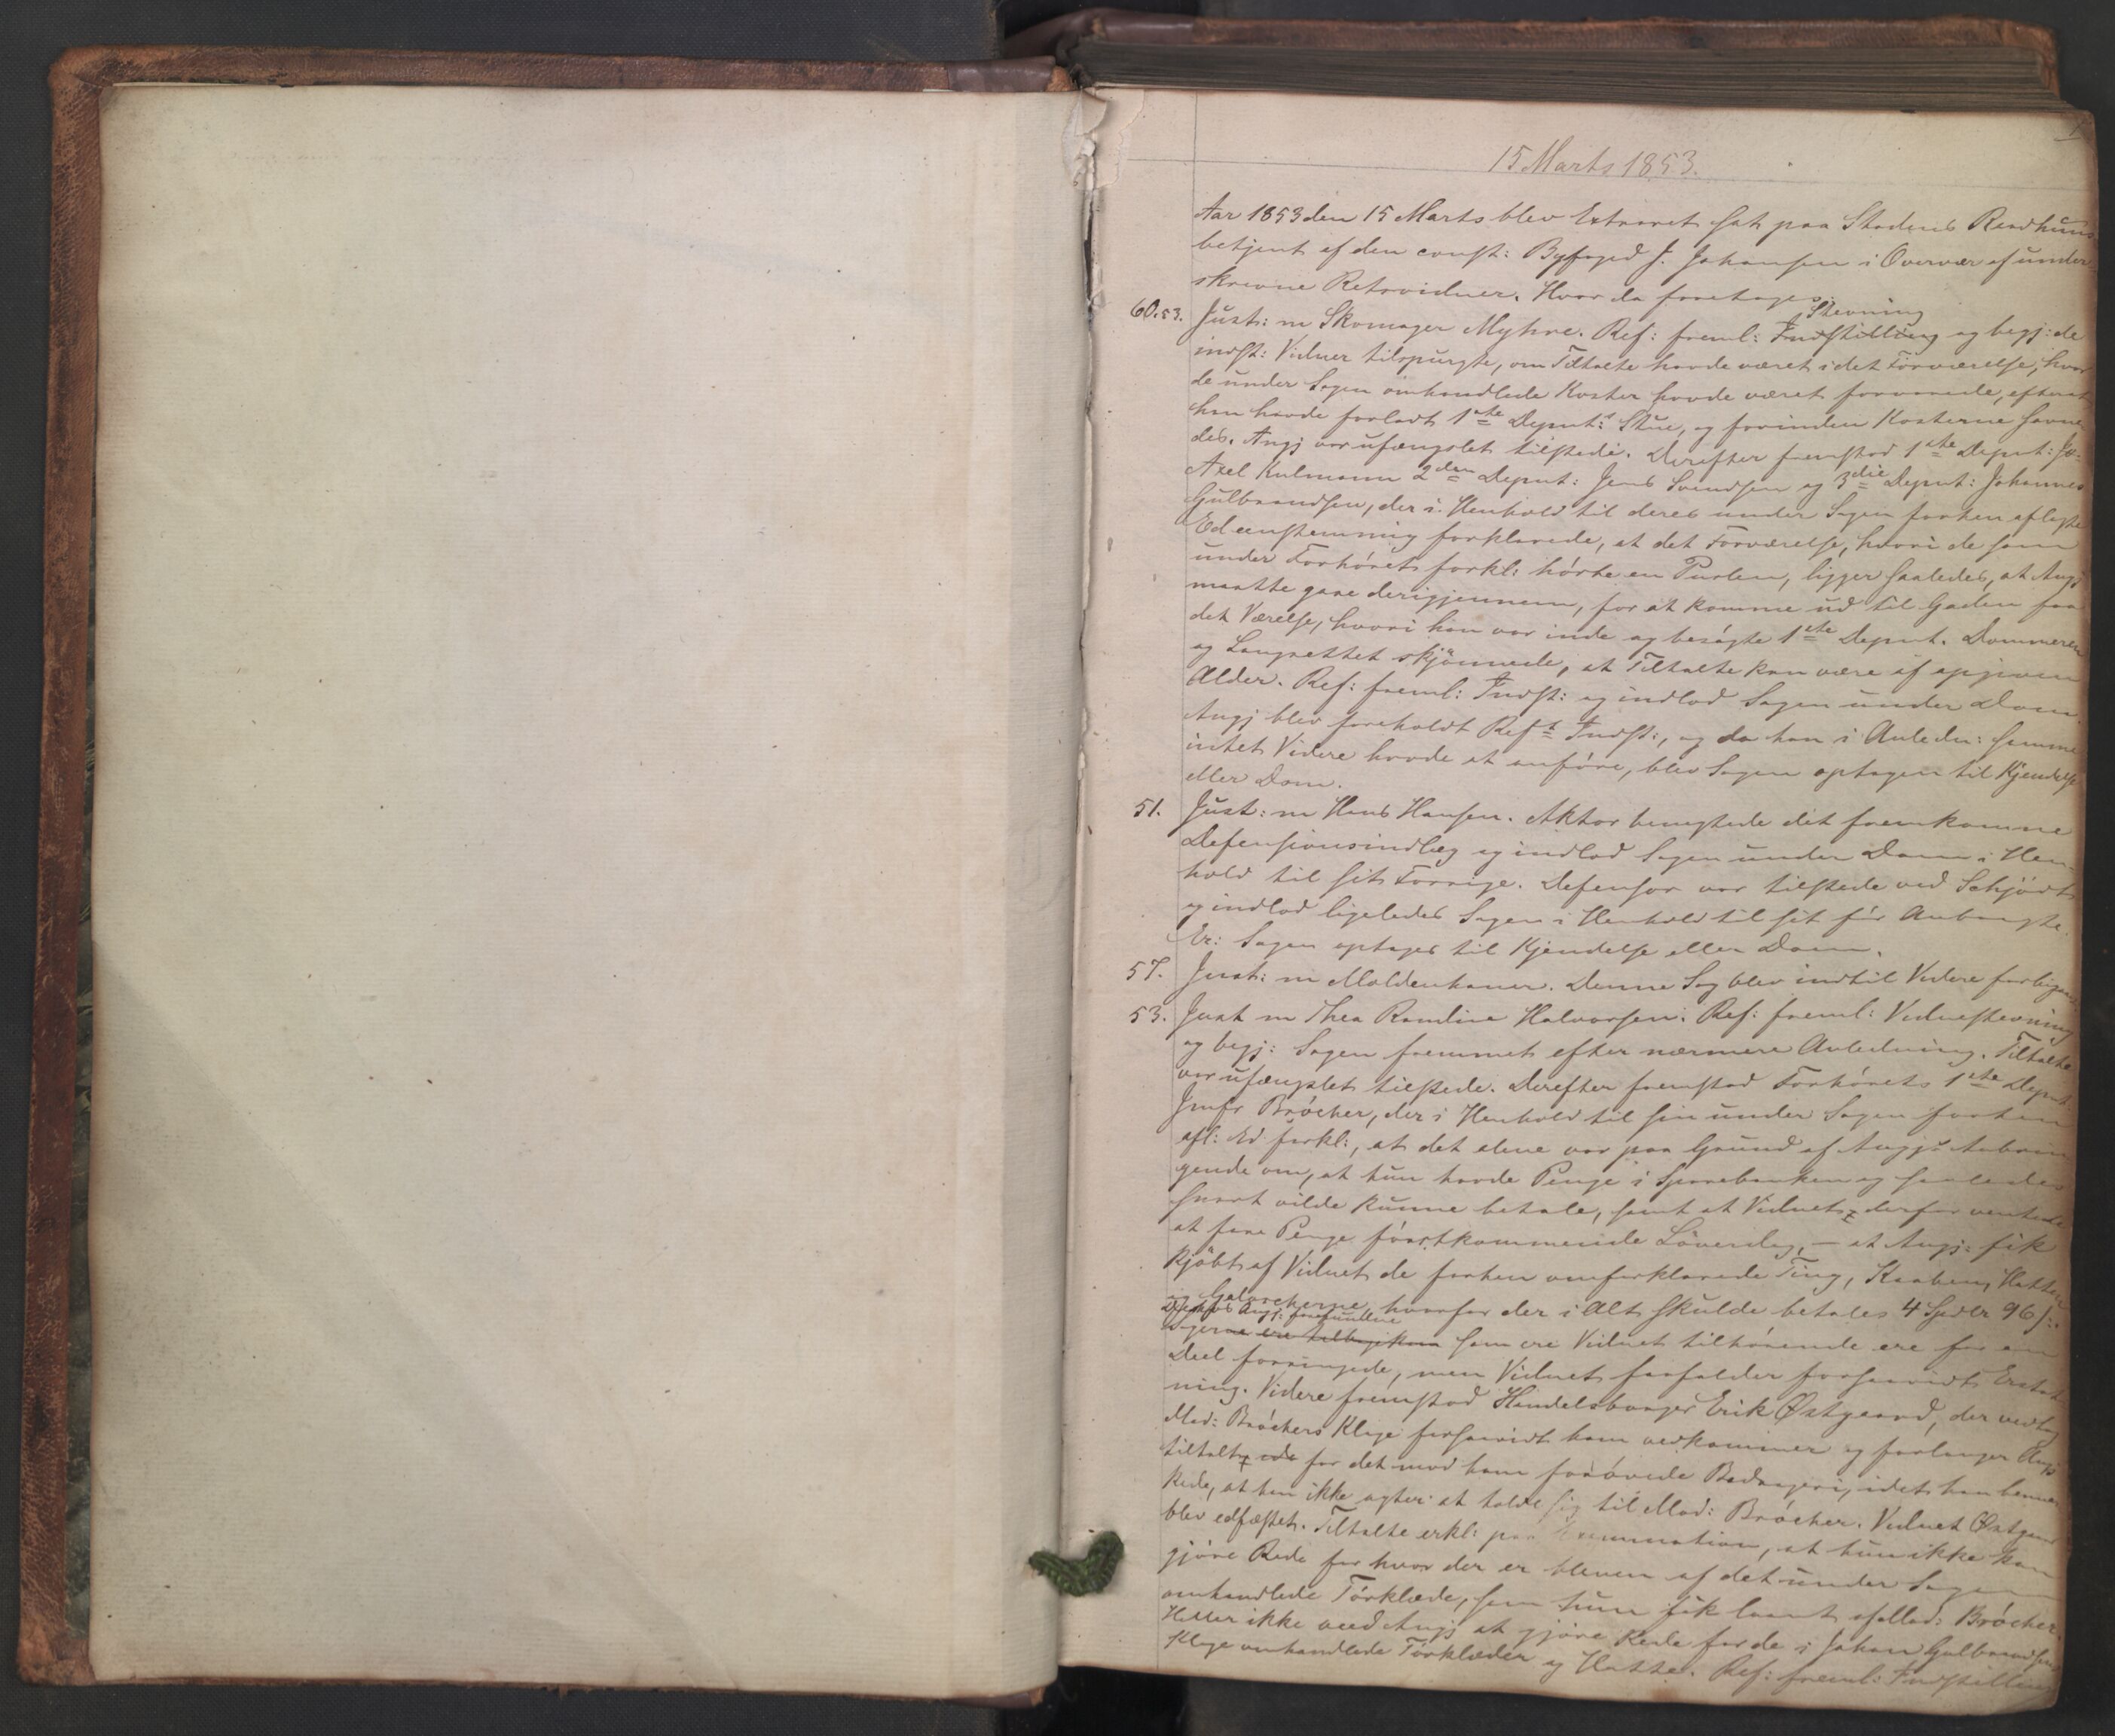 1
15 Marts 1853.
Aar 1853 den 15 Marts blev Extraret sat paa Stadens Raadhuus
betjent af den const: Byfoged J. Johansen i Overvær af under-
skrevne Retsvidner. Hvor da foretages:
Stevning
60.53. Just: m Skomager Myhre. Ref: freml: Indstilling og begj: de
indst: Vidner tilspurgte, om Tiltalte havde været i det Forværelse, hvor
de under Sagen omhandlede Koster havde været forvarede, efterat
han havde forladt 1ste Deput: Stue, og forinden Kosterne savne-
des. Angj var ufængslet tilstede. Derefter fremstod 1ste Deput:
Axel Kulmann 2den Deput: Jens Svendsen og 3die Deput: Johannes
Gulbrandsen, der i Henhold til deres under Sagen forhen aflagte
Ed eenstemmig forklarede, at det Forværelse, hvori de som
under Forhöret forkl: hörte en Puslen, ligger saaledes, at Angj
maatte gaae derigjennem, for at komme ud til Gaden fra
det Værelse, hvori han var inde og besögte 1ste Deput. Dommeren
og Laugrettet skjönnede, at Tiltalte kan være af opgiven
Alder. Ref: freml: Indst: og indlod Sagen under Dom.
Angj blev foreholdt Refs Indst:, og da han i Anledn: samme
intet Videre havde at anföre, blev Sagen optagen til Kjendelse
eller Dom.
51. Just: m Hans Hansen. Aktor benegtede det fremkomne
Defensionsindlæg og indlod Sagen under Dom i Hen-
hold til sit Forrige. Defensor var tilstede ved Schjödt
og indlod ligeledes Sagen i Henhold til sit för Anbragte.
Er: Sagen optages til Kjendelse eller Dom.
57. Just: m Moldenhauer. Denne Sag blev indtil Videre forbigaaet
53. Just m Thea Randine Halvorsen. Ref: freml: Vidnestevning
og begj: Sagen fremmet efter nærmere Anledning. Tiltalte
var ufængslet tilstede. Derefter fremstod Forhörets 1ste Deput
Jmfr Bröcher, der i Henhold til sin under Sagen forhen
afl: Ed forkl:, at det alene var paa Grund af Angjs Anbrin-
gende om, at hun havde Penge i Sparebanken og saaledes
snart vilde kunne betale, samt at Vidnet derfor ventede
at faae Penge förstkommende Löverdag, — at Angj: fik
kjöbt af Vidnet de forhen omforklarede Ting, Kaaben, Hatten
og Galoscherne, hvorfor der i Alt skulde betales 4 Spdlr 96 s:.
De hos Angj: forefundne
Sagerne ere tilbagekom som ere Vidnet tilhörende ere for en
Deel forringede, men Vidnet frafalder forsaavidt Erstat-
ning. Videre fremstod Handelsborger Erik Østgaard, der vedtog
Mad: Bröchers Klage forsaavidt ham vedkommer og forlanger Angj
tiltalt for det mod ham forövede Bedrageri, idet han bemær-
kede, at han ikke agter at holde sig til Mad: Bröcher. Vidnet Østgaard
blev edfæstet. Tiltalte erkl: paa Examination, at hun ikke kan
gjöre Rede for hvor der er bleven af det under Sagen
omhandlede Törklæde, som hun fik laant af Mad: Bröcher.
Heller ikke veed Angj at gjöre Rede for de i Johan Gulbrandsens
Klage omhandlede Törklæder og Hatte. Ref: freml: Indstilling